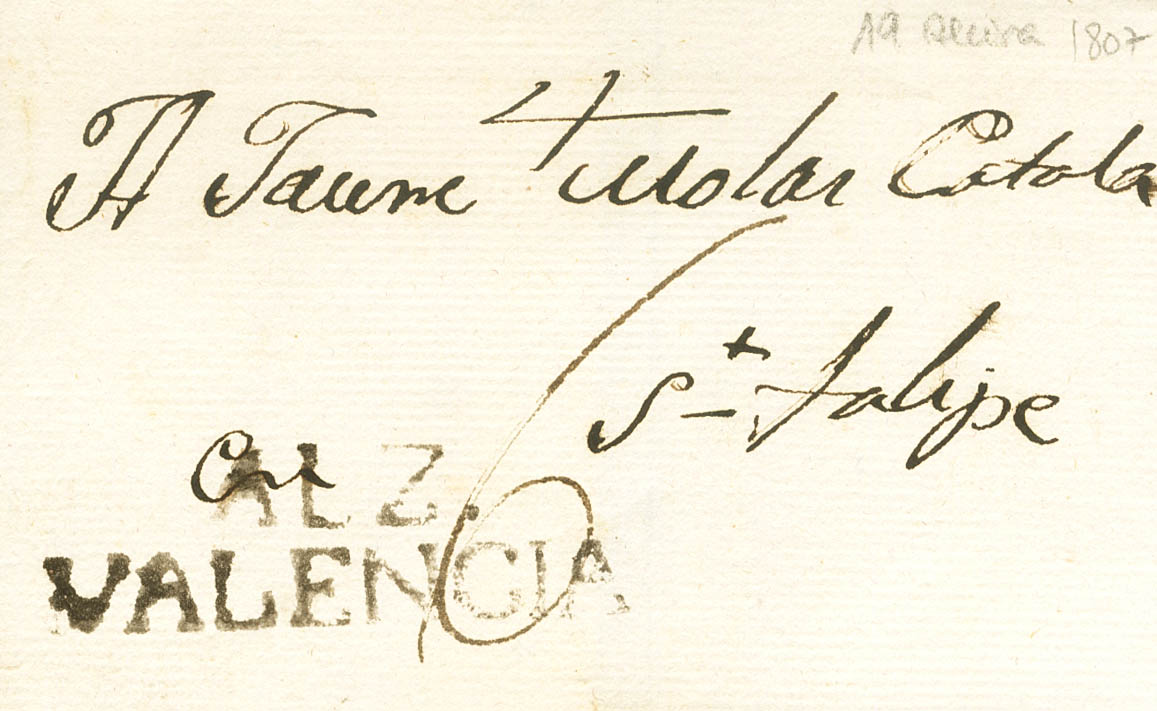 19 Alcira 1807
A Jaume Molar Catala
Sn Falipe
En
ALZ.
VALENCIA